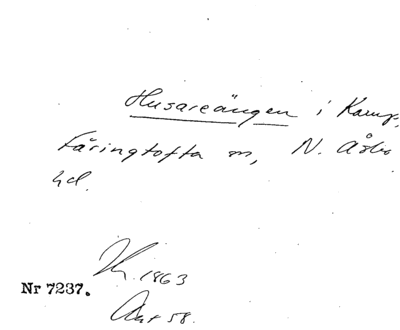 Husareängen i Kamp,
Färingtofta sn, N. Åsbo
hd.
1863
Nr 7237.
58.